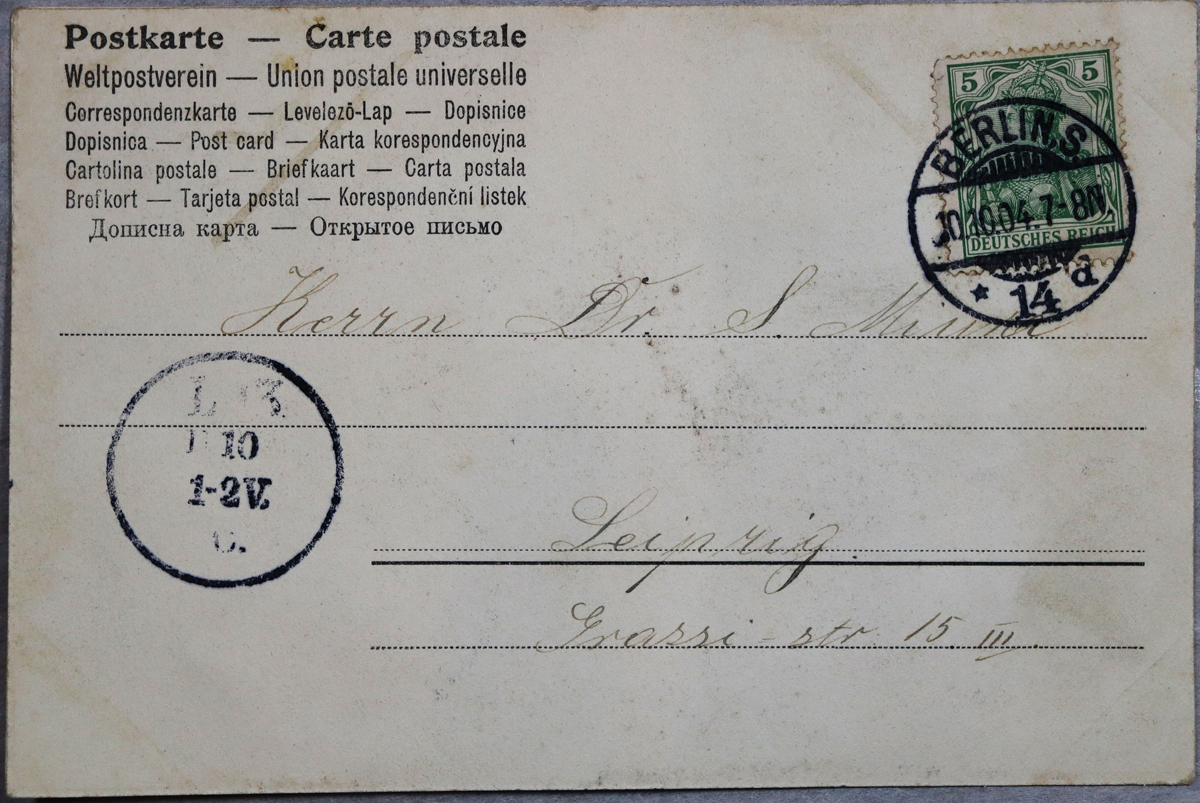 Postkarte — Carte postale
Weltpostverein — Union postale universelle
Correspondenzkarte — Levelező-Lap — Dopisnice
Dopisnica — Post card — Karta korespondencyjna
Cartolina postale — Briefkaart — Carta postala
Brefkort — Tarjeta postal — Korespondenční listek
Дописна карта — Открытое письмо
5 5
DEUTSCHES REICH
BERLIN.S.
10.10.04.7-8N.
* 14 d
Herrn Dr. S
10
1-2V.
Leipzig
Grassi-str 15 III.